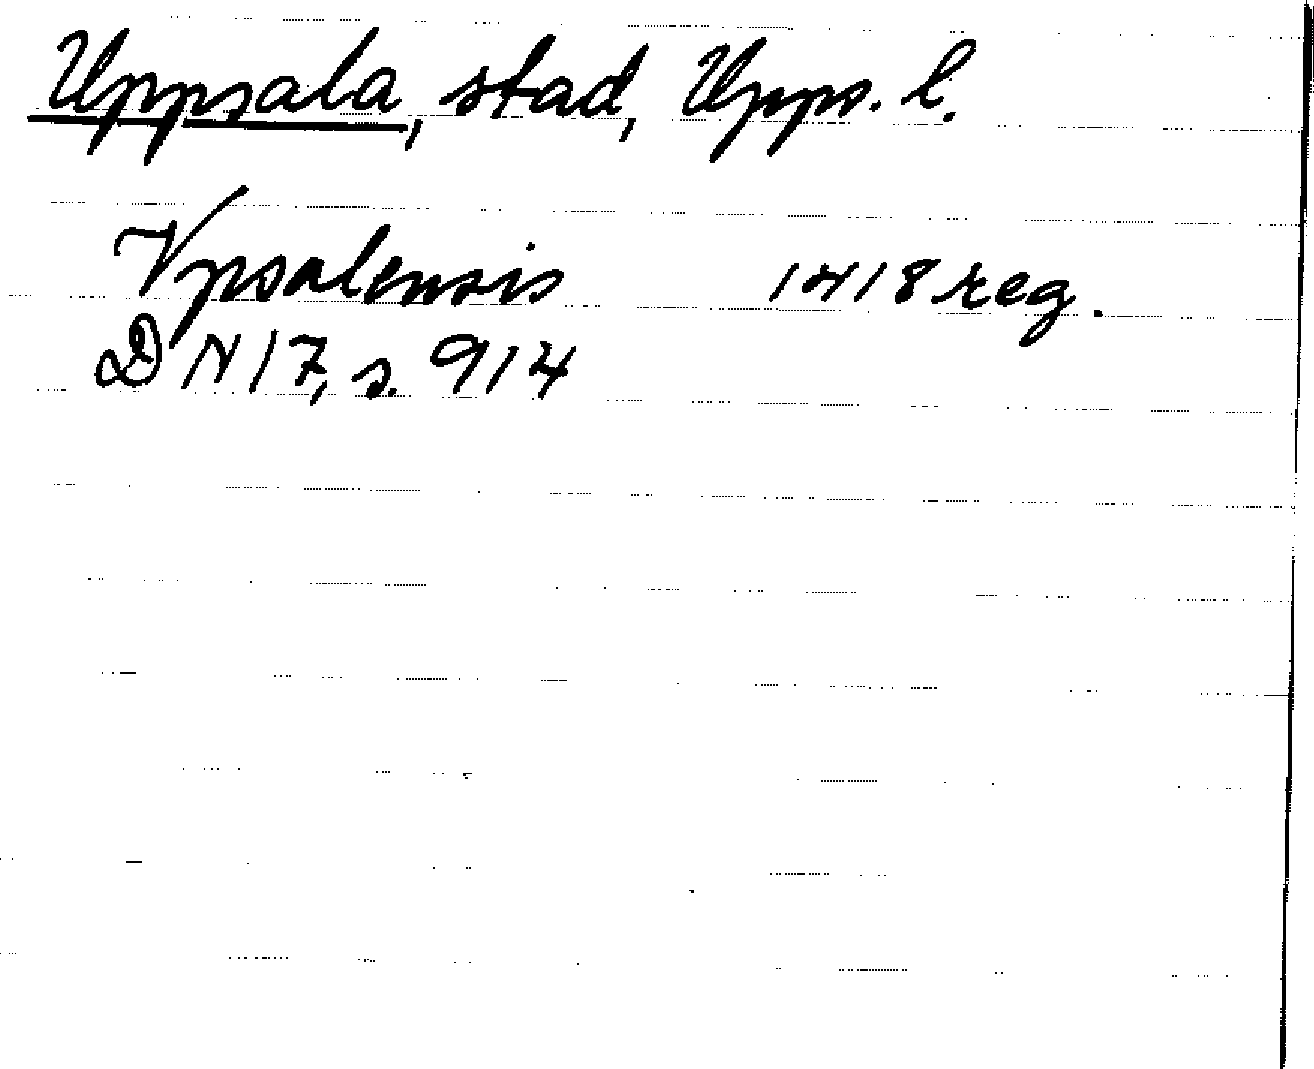 Uppsala, stad, Upps. l.
Vpsalensis 1418 reg.
DN 17, s. 914